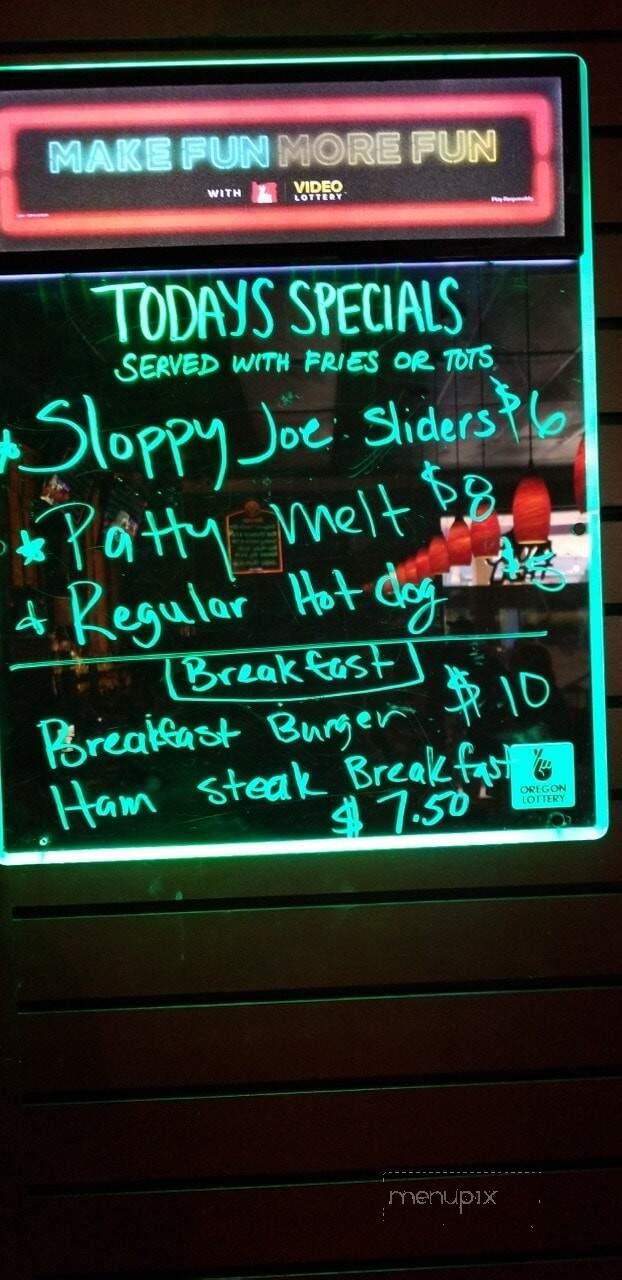 MAKE FUN MORE FUN
WITH VIDEO LOTTERY
Play Responsibly
TODAYS SPECIALS
SERVED WITH FRIES OR TOTS
Sloppy Joe Sliders $6
Patty Melt $8
Regular Hot dog $5
Breakfast
Breakfast Burger $10
Ham steak Breakfast
$7.50
OREGON
LOTTERY
menupix